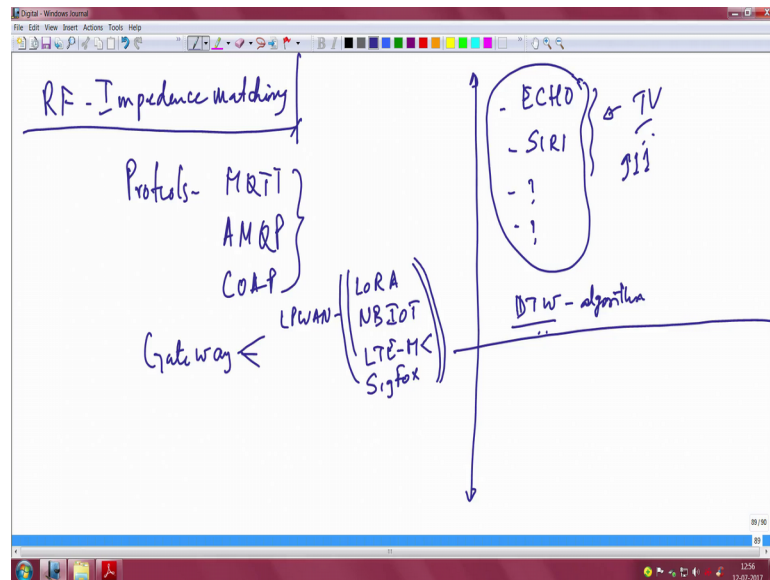 Digital - Windows Journal
File Edit View Insert Actions Tools Help
RF - Impedence matching
Protcols - MQTT
AMQP
COAP
LPWAN - LORA
NBIOT
LTE-M
Sigfox
Gateway
- ECHO
- SIRI
- ?
- ?
TV
DTW - algorithm
89/90
89
12:56
12-02-2017